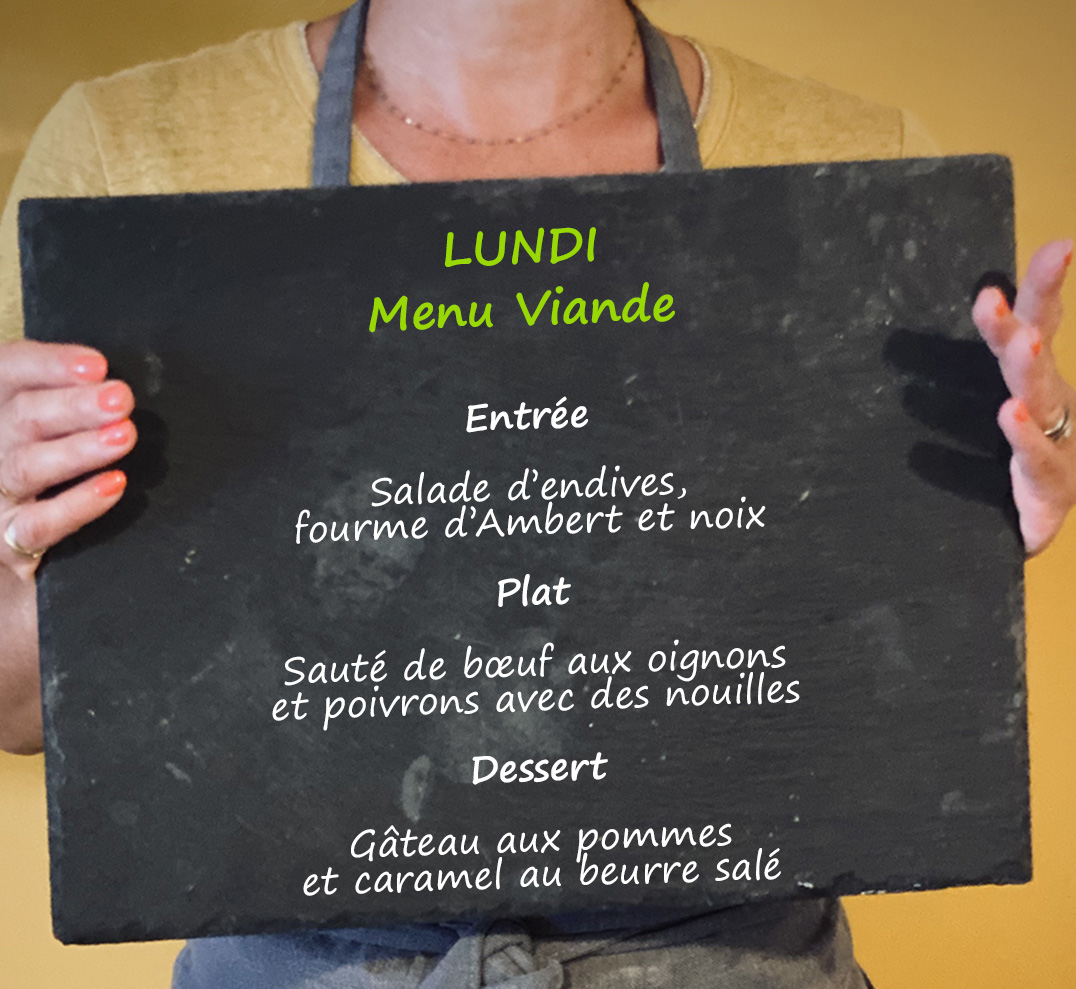 LUNDI
Menu Viande
Entrée
Salade d'endives,
fourme d'Ambert et noix
Plat
Sauté de bœuf aux oignons
et poivrons avec des nouilles
Dessert
Gâteau aux pommes
et caramel au beurre salé